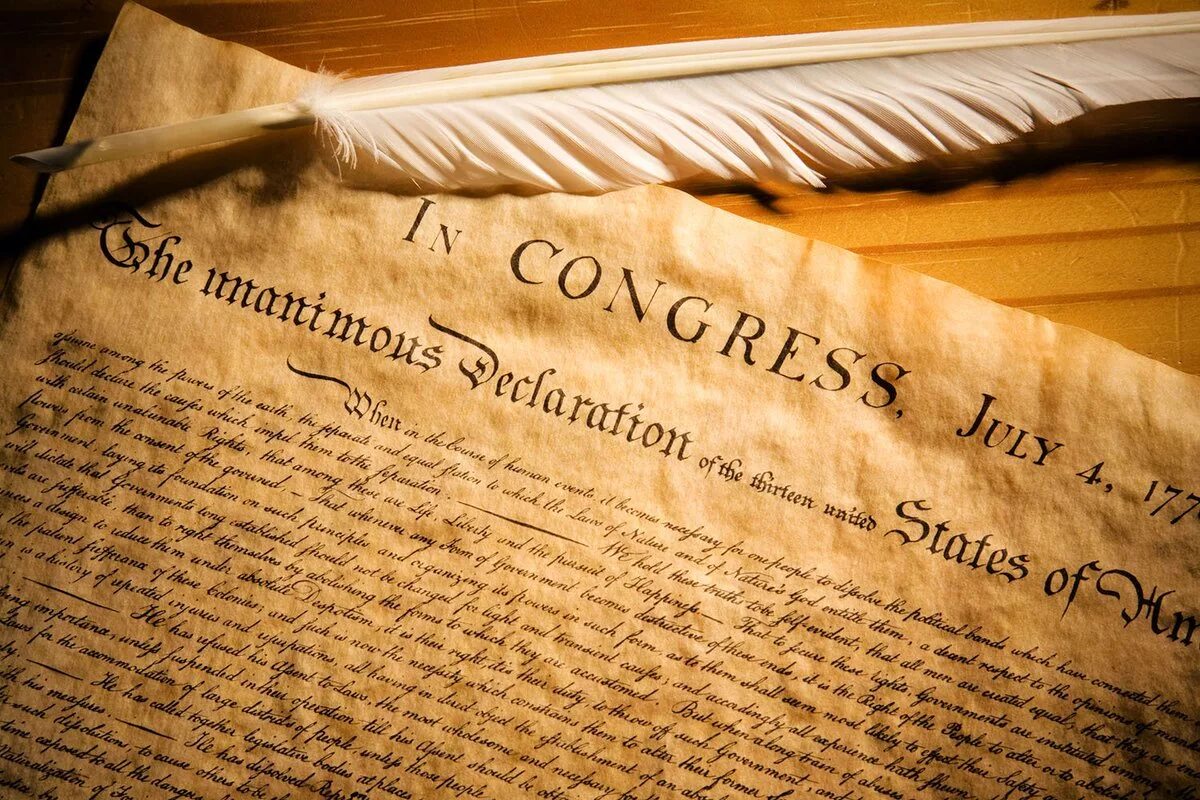 IN CONGRESS, JULY 4, 177
The unanimous Declaration of the thirteen united States of Am
When in the Course of human events, it becomes necessary for one people to dissolve the political bands which have connected them
assume among the powers of the earth, the separate and equal station to which the Laws of Nature and of Nature's God entitle them, a decent respect to the opinions of
should declare the causes which impel them to the separation. We hold these truths to be self-evident, that all men are created equal, that they are
with certain unalienable Rights, that among these are Life, Liberty and the pursuit of Happiness. — That to secure these rights, Governments are instituted among
powers from the consent of the governed, — That whenever any Form of Government becomes destructive of these ends, it is the Right of the People to alter or to abolish
Government, laying its foundation on such principles and organizing its powers in such form, as to them shall seem most likely to effect their Safety
will dictate that Governments long established should not be changed for light and transient causes; and accordingly all experience hath shewn,
are sufferable, than to right themselves by abolishing the forms to which they are accustomed. But when a long train of abuses
a design to reduce them under absolute Despotism, it is their right, it is their duty, to throw off such Government, and
the patient sufferance of these Colonies; and such is now the necessity which constrains them to alter their former
is a history of repeated injuries and usurpations, all having in direct object the establishment of an
He has refused his Assent to Laws, the most wholesome and necessary for
importance, unless suspended in their operation till his Assent should be
Laws for the accommodation of large districts of people, unless those people
He has called together legislative bodies at places
his measures. He has dissolved
such dissolutions, to cause others to be
exposed to all the dangers